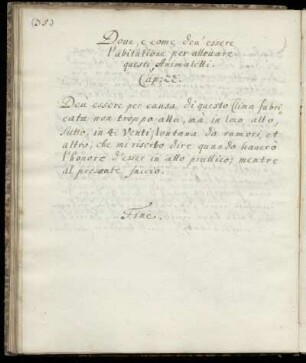 (58)
Doue, e come deu' essere
l'abitatione per alleuare
questi Animaletti.
Cap: 22.
Deu' essere per causa di questo Clima fabri
cata non troppo alta, mà in loco alto,
sutto, in 4. Venti, lontana da rumori, et
altro, che mi riserbo dire quando hauerò
l'honore d'esser in atto prattico; mentre
al presente finisco.
Fine.